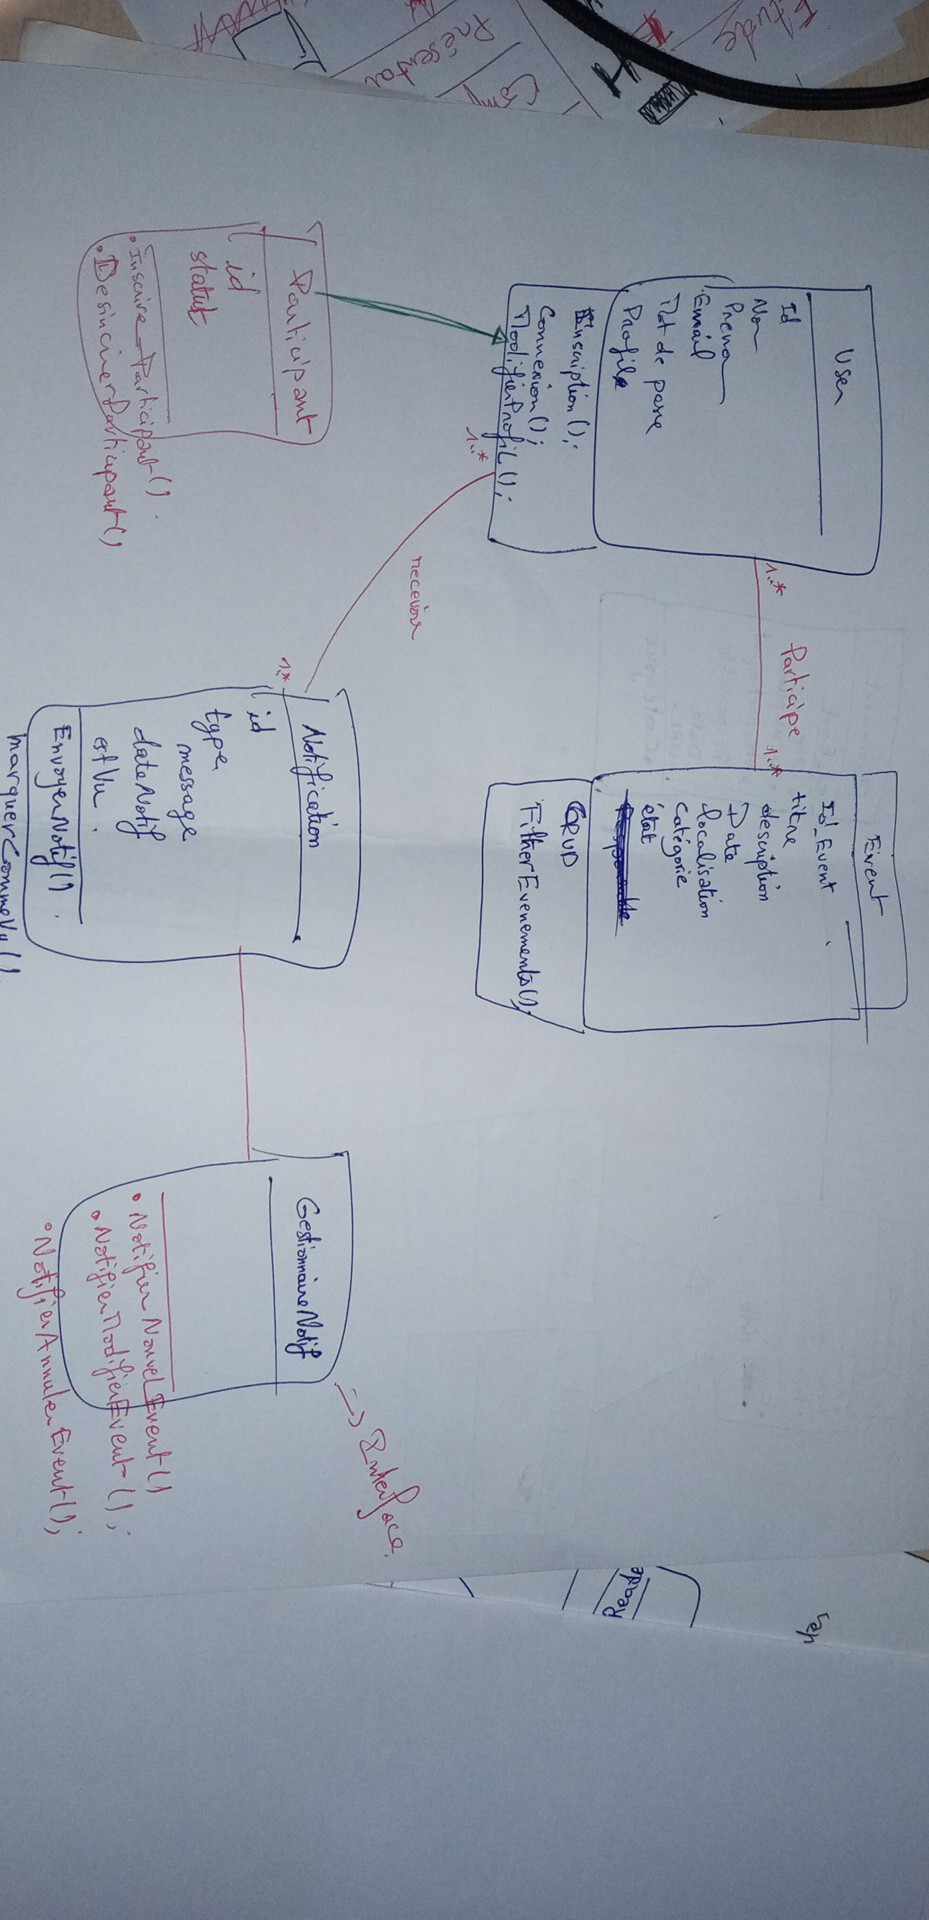 User
Id
Nom
Prenom
Email
Mot de passe
Profile
Inscription();
Connexion();
ModifierProfil();
1..*
Participe
1..*
Event
Id_Event
titre
description
Date
localisation
catégorie
état
CRUD
FiltherEvenements();
1..*
recevoir
1..*
Participant
id
statut
• Inscrire_Participant().
• DesincrerParticipant()
Notification
id
type
message
dateNotif
estVu.
EnvoyerNotif().
marquerCommeVu()
GestionnaireNotif
=> Interface
• NotifierNouvelEvent()
• NotifierModifierEvent();
• NotifierAnnulerEvent();
Etude
Présentat
Comp
des
Reade